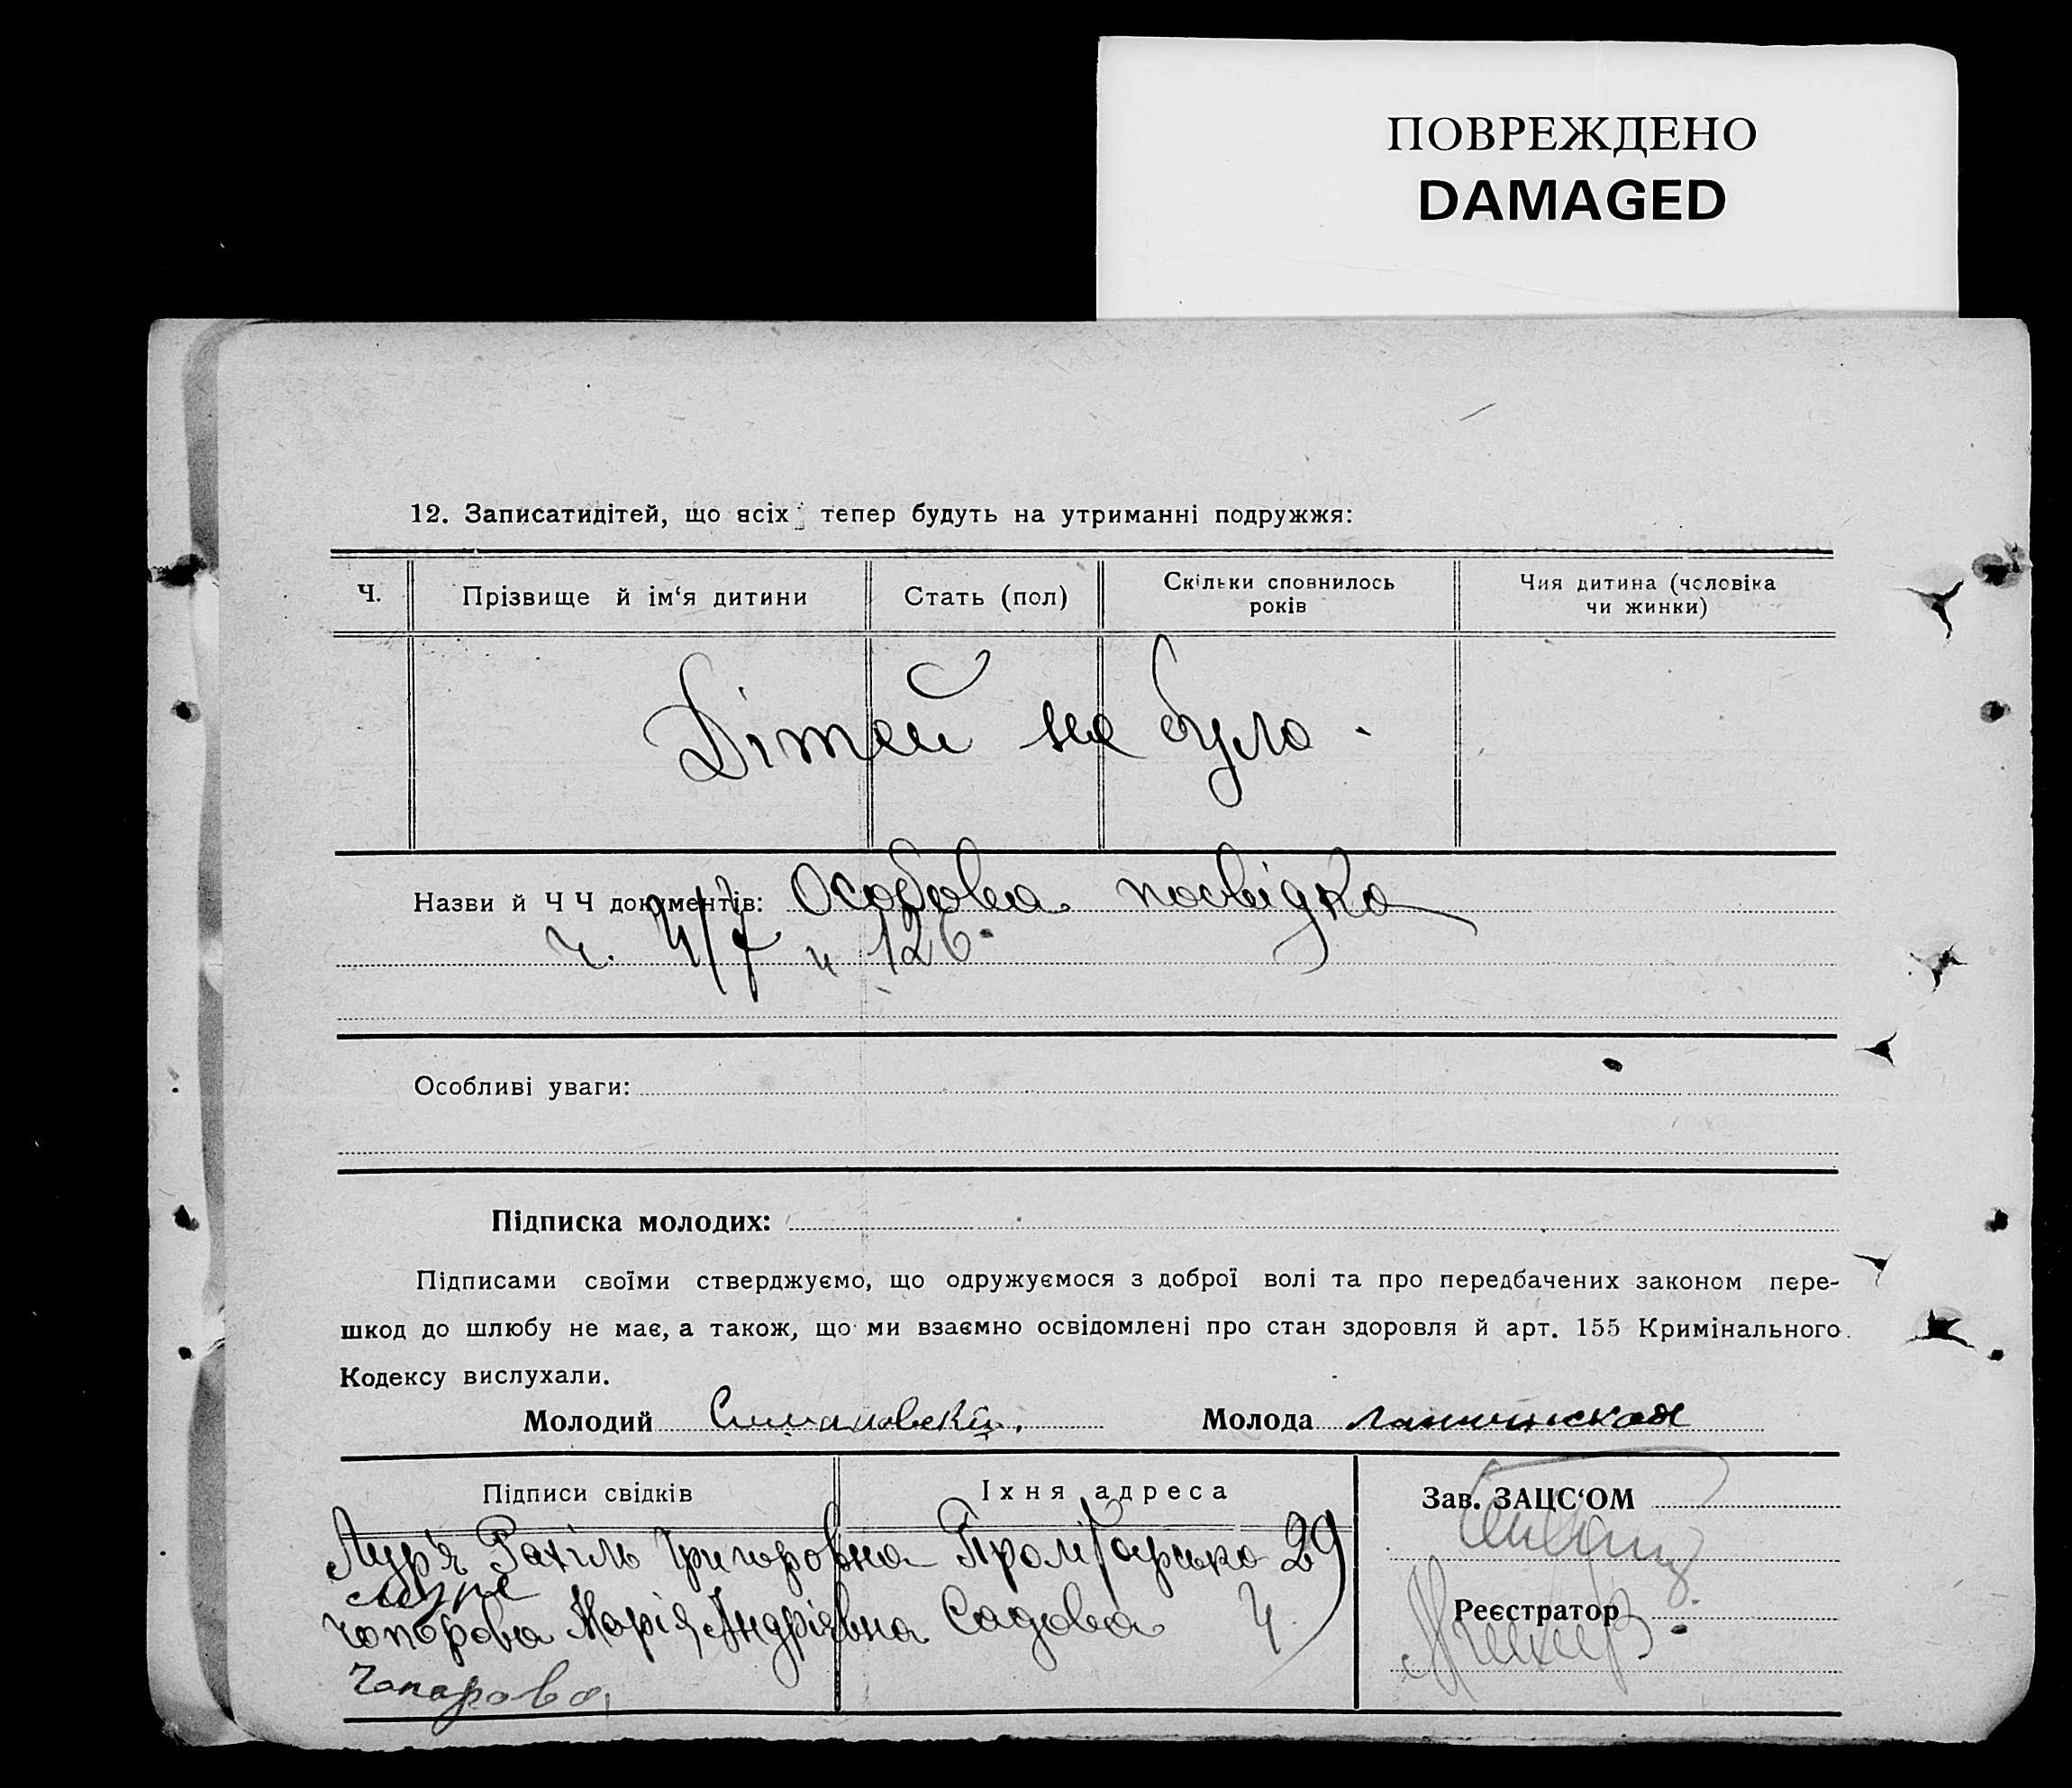 ПОВРЕЖДЕНО
DAMAGED
12. Записатидітей, що всіх тепер будуть на утриманні подружжя:
Ч.
Прізвище й ім‘я дитини
Стать (пол)
Скільки сповнилось
років
Чия дитина (человіка
чи жинки)
Дітей не було.
Назви й Ч Ч документів: Особова посвідка
ч. и 126.
Особливі уваги:
Підписка молодих:
Підписами своїми стверджуємо, що одружуємося з доброї волі та про передбачених законом пере-
шкод до шлюбу не має, а також, що ми взаємно освідомлені про стан здоровля й арт. 155 Кримінального
Кодексу вислухали.
Молодий
Молода
Підписи свідків
Їхня адреса
Зав. ЗАЦС‘ОМ
Рахіль Григоровна 29
Реєстратор
Чопорова Марія Андріївна Садова 4.
Чапарова